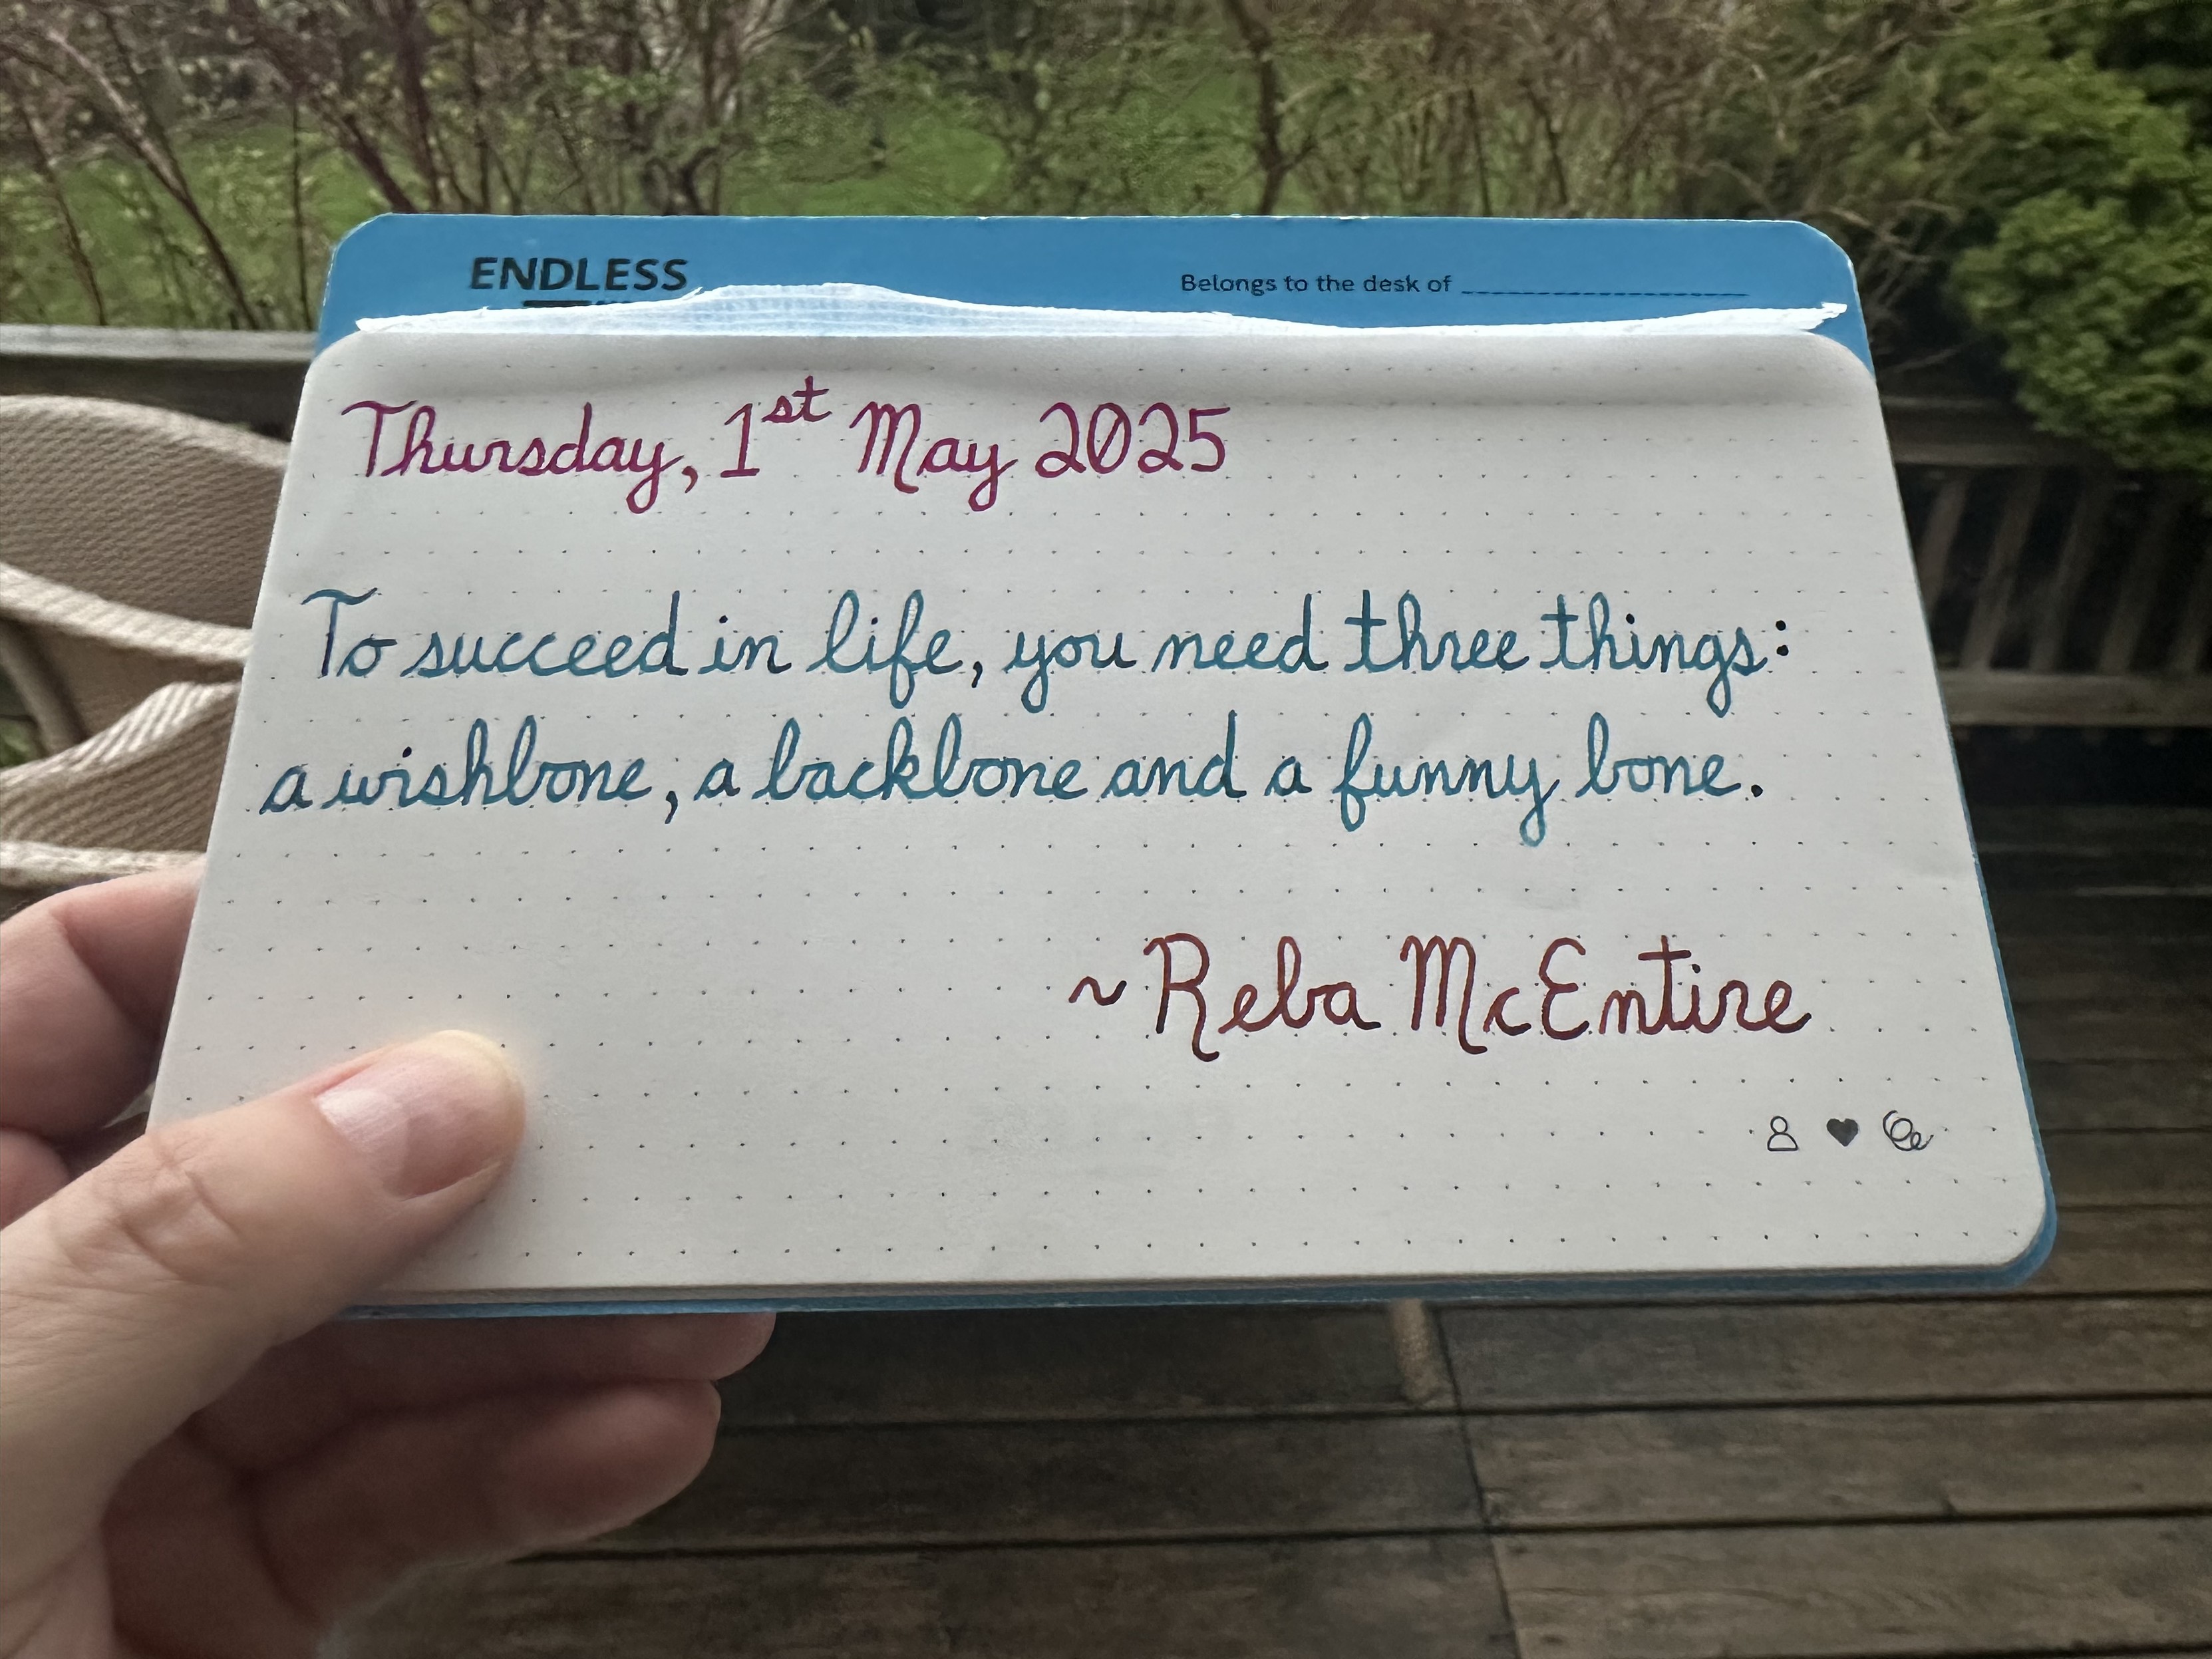 ENDLESS
Belongs to the desk of
Thursday, 1st May 2025
To succeed in life, you need three things:
a wishbone, a backbone and a funny bone.
~ Reba McEntire